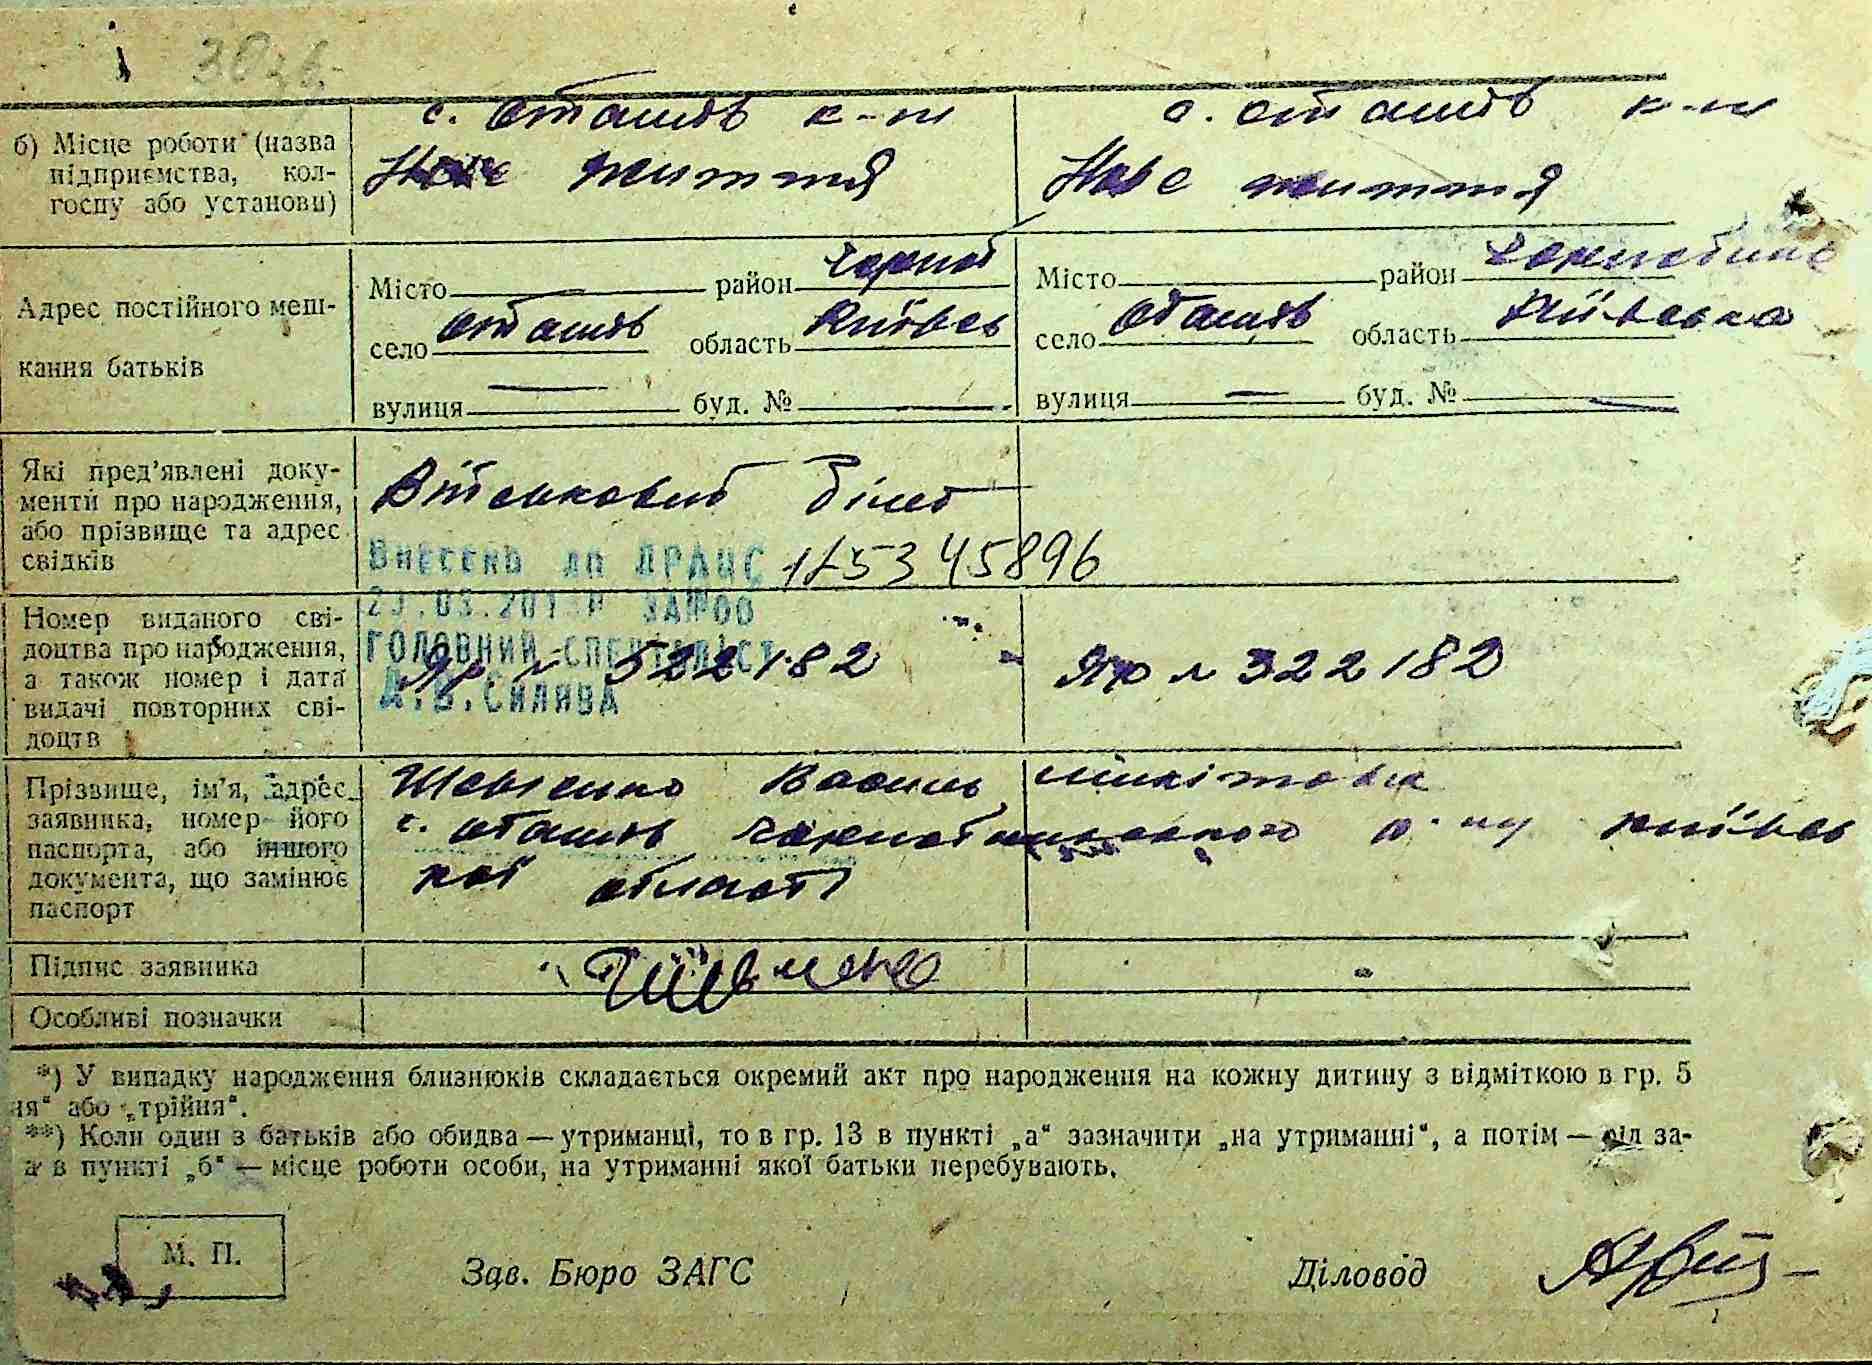 с. Оташів к-п с. Оташів к-п
б) Місце роботи (назва підприємства, колгоспу або установи)
Нове життя Нове життя
Адрес постійного мешкання батьків
Місто район Чорноб Місто район Чорнобильс
село Оташів область Київсь село Оташів область Київська
вулиця — буд. № — вулиця — буд. № —
Які пред’явлені документи про народження, або прізвище та адрес свідків
Військовий білет
1/53 45896
Внесено до ДРАЦС
ЗА №00
ГОЛОВНИЙ СПЕЦІАЛІСТ
Номер виданого свідоцтва про народження, а також номер і дата видачі повторних свідоцтв
522182 ЯЮ № 322182
Прізвище, ім’я, адрес заявника, номер його паспорта, або іншого документа, що замінює паспорт
Шевченко Василь Микітович
с. Оташів Чорнобильського р-ну Київсь
кої області
Підпис заявника
Особливі позначки
*) У випадку народження близнюків складається окремий акт про народження на кожну дитину з відміткою в гр. 5
ня“ або „трійня“.
**) Коли один з батьків або обидва — утриманці, то в гр. 13 в пункті „а“ зазначити „на утриманні“, а потім — від за-
а в пункті „б“ — місце роботи особи, на утриманні якої батьки перебувають.
М. П.
Зав. Бюро ЗАГС Діловод